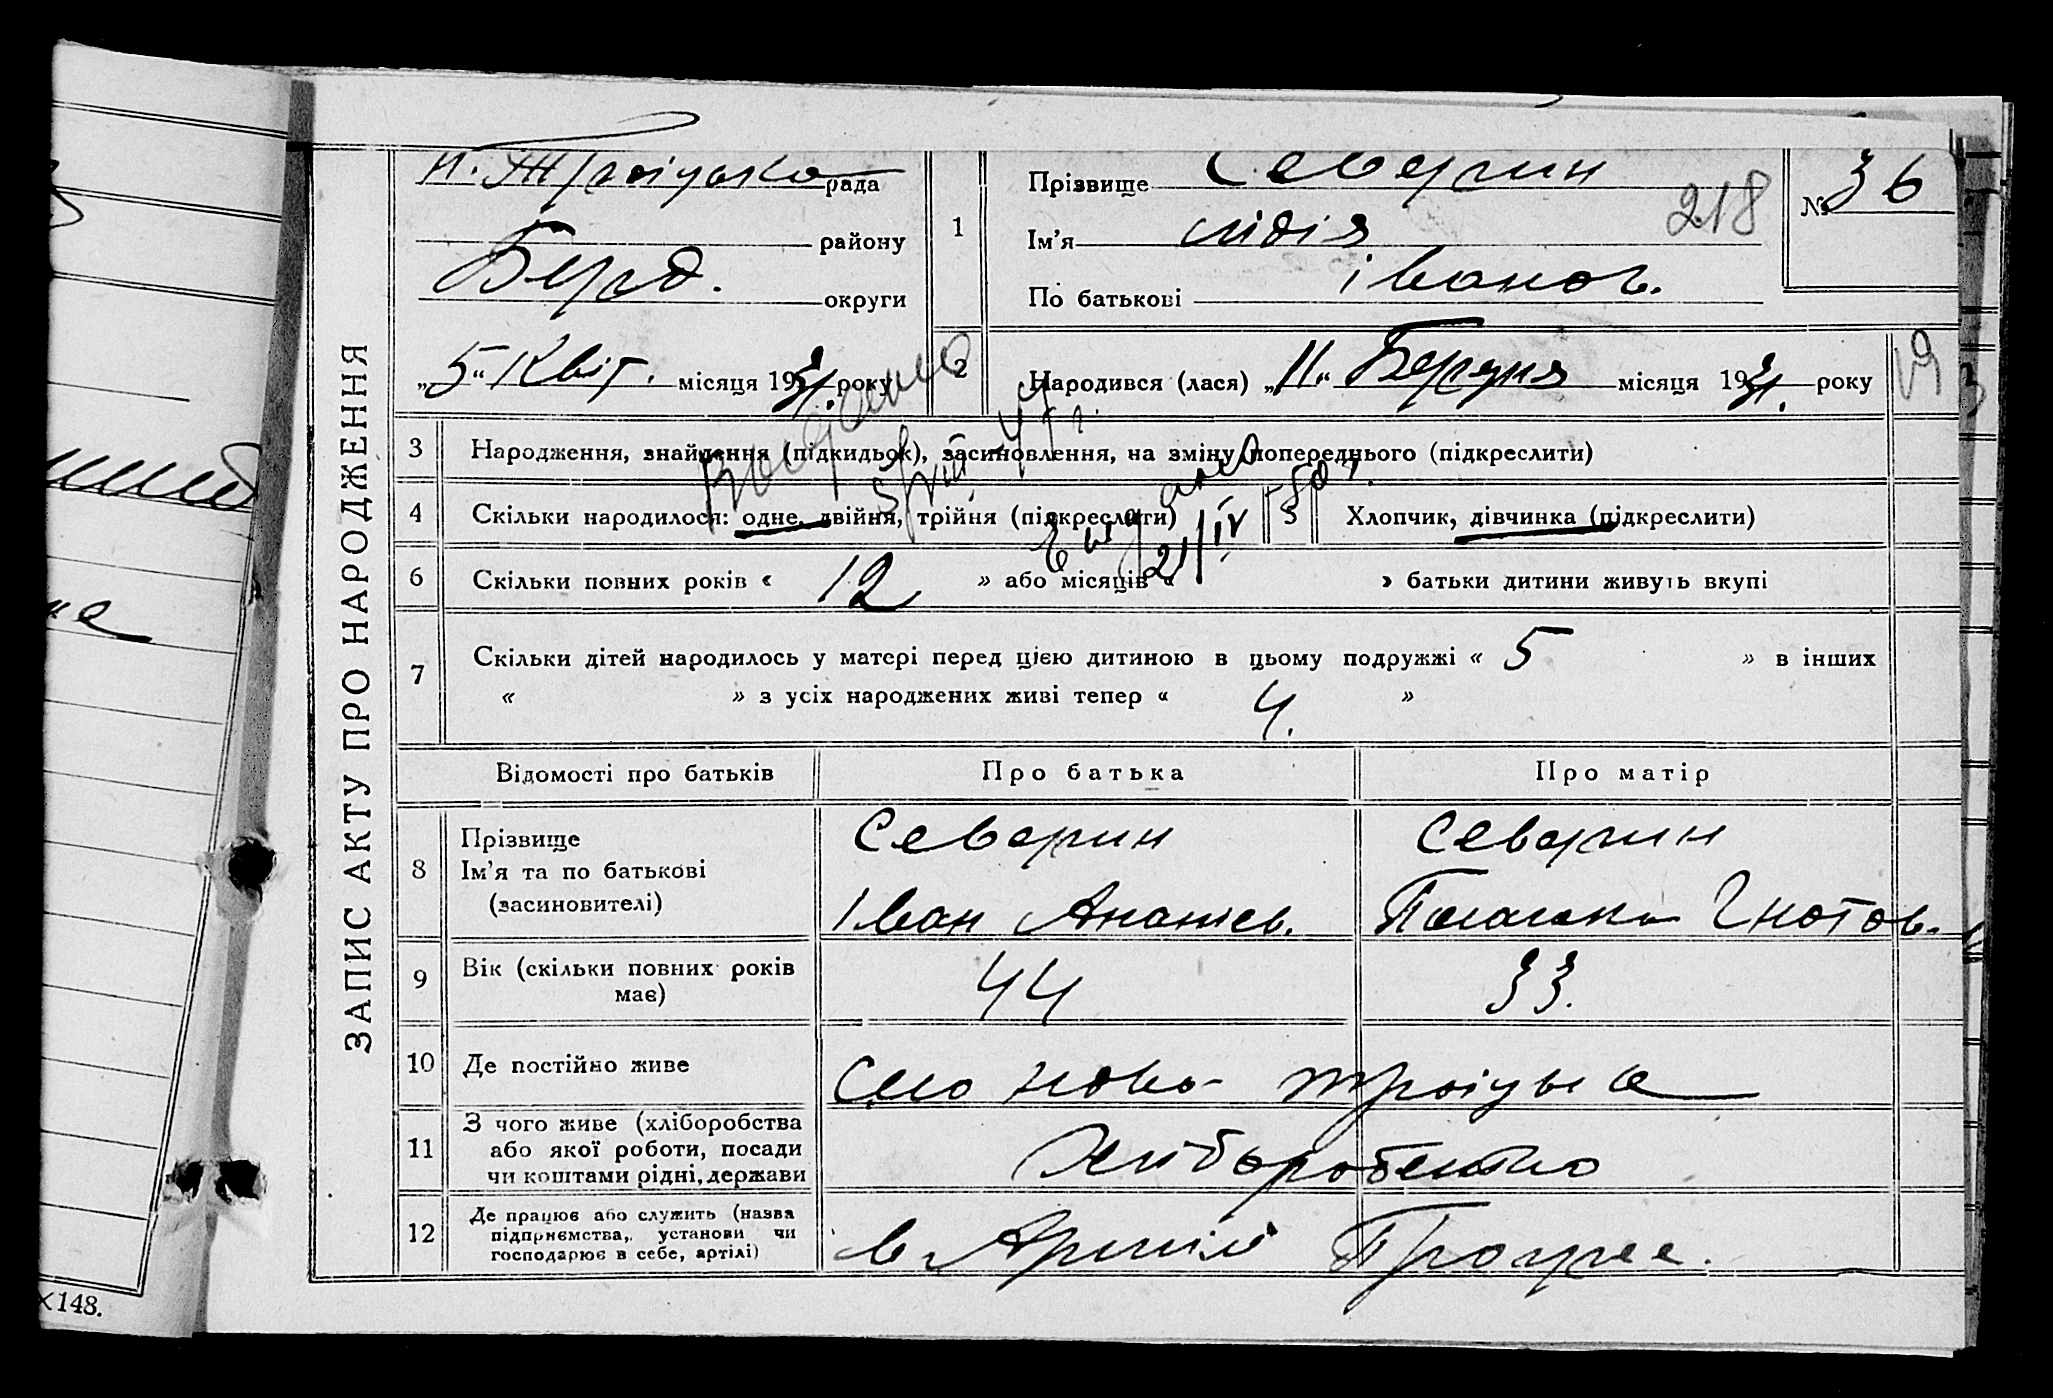 ЗАПИС АКТУ ПРО НАРОДЖЕННЯ
Н. Троіцька рада
району
Берд. округи
„5“ Квіт. місяця 1931. року
1
Прізвище Северин
Ім'я Лідія
По батькові Іванов.
218
№ 36
2
Народився (лася) „11“ Березня місяця 1931. року
19
3 Народження, знайдення (підкидьок), засиновлення, на зміну попереднього (підкреслити)
4 Скільки народилося: одне, двійня, трійня (підкреслити) 5 Хлопчик, дівчинка (підкреслити)
21/IV-50 г.
6 Скільки повних років « 12 » або місяців « » батьки дитини живуть вкупі
7 Скільки дітей народилось у матері перед цією дитиною в цьому подружжі « 5 » в інших
« » з усіх народжених живі тепер « 4. »
Відомості про батьків Про батька Про матір
8 Прізвище
Ім'я та по батькові
(засиновителі)
Северин
Іван Ананіев.
Северин
Гнотов.
9 Вік (скільки повних років
має)
44 33.
10 Де постійно живе Село Ново-Троіцька
11 З чого живе (хліборобства
або якої роботи, посади
чи коштами рідні, держави
Хліборобство
12 Де працює або служить (назва
підприємства, установи чи
господарює в себе, артілі)
в Артілі Прогрес.
148.